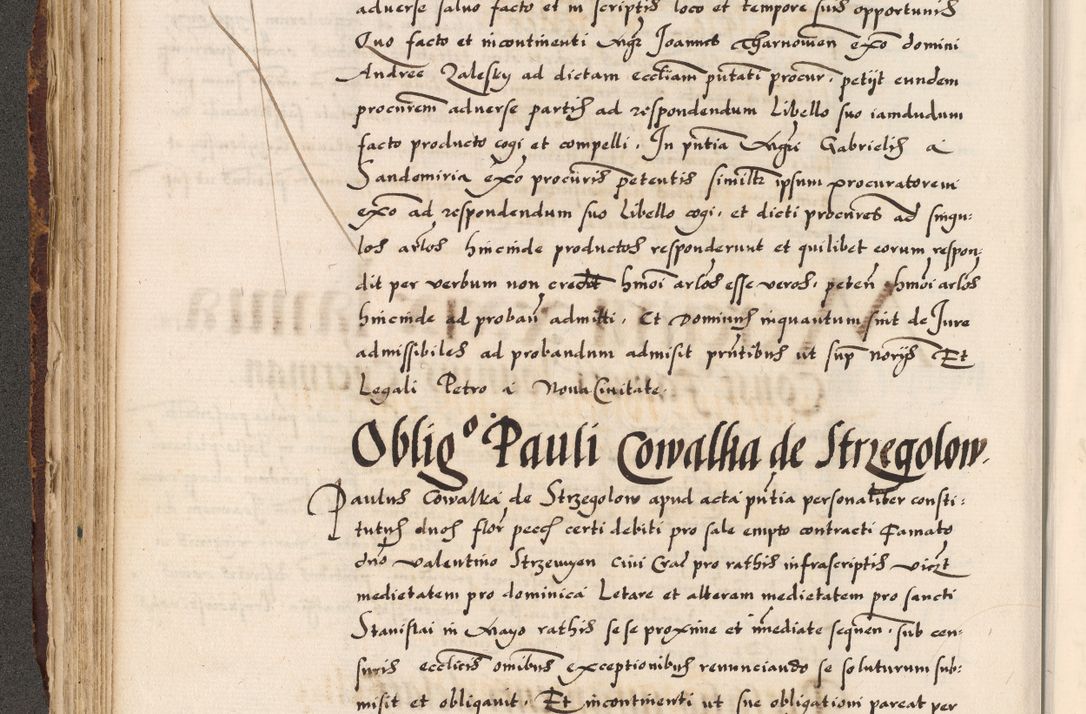 adverse salvo facto et in scriptis loco et tempore suis opportunis
Quo facto et incontinenti Mgr Joannes Tharnowen exo domini
Andree Zalesky ad dictam eccliam putati procur. petijt eundem
procurem adverse partis ad respondendum Libello suo iamdudum
facto producto cogi et compelli. In pntia Mgri Gabrielis a
Sandomiria exo procuris petentis similr ipsum procuratorem
exo ad respondendum suo Libello cogi, et dicti procures ad singu:
los arlos hincinde productos responderunt et quilibet eorum respon:
dit per verbum non credit hmoi arlos esse veros, peten hmoi arlos
hincinde ad proban admitti. Et Dominus inquantum sint de Jure
admissibiles ad probandum admisit pntibus ut sup norijs Et
Legali Petro a Nova Civitate.
Obligo Pauli Cowalka de Strzegolow.
Paulus Cowalka de Strzegolow apud acta pntia personaliter consti:
tutus duos flor pecc certi debiti pro sale empto contracti Famato
dno Valentino Strzewyen civi Crac pro rathis infrascriptis vicz
medietatem pro dominica Letare et alteram medietatem pro sancti
Stanislai in Mayo rathis sese proxime et immediate sequen. sub cen:
suris ecclicis omibus exceptionibus renunciando se soluturum sub:
misit et obligavit. Et incontinenti ut sue obligationi pareat per